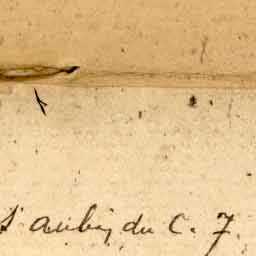 S' aubin du C. 7.